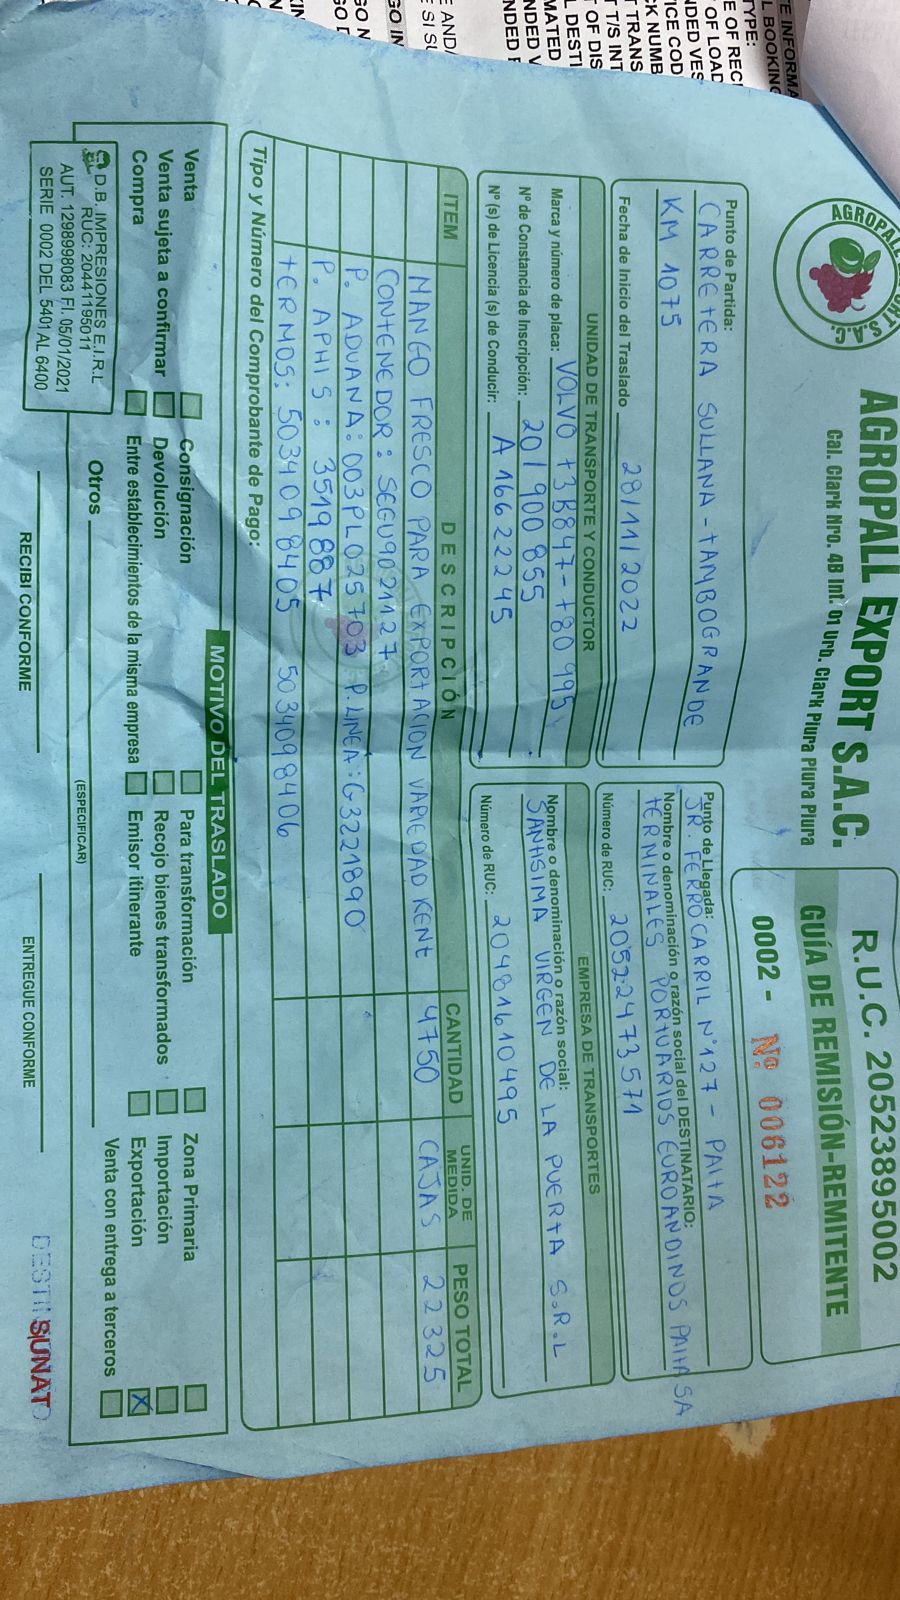 AGROPALL EXPORT S.A.C.
AGROPALL EXPORT S.A.C.
Cal. Clark Nro. 4B Int. 01 Urb. Clark Piura Piura Piura
R.U.C. 20523895002
GUÍA DE REMISIÓN-REMITENTE
0002 - Nº 006122
Punto de Partida:
CARRETERA SULLANA - TAMBOGRANDE
KM 1075
Fecha de Inicio del Traslado 28/11/2022
Punto de Llegada:
JR. FERROCARRIL N°127 - PAITA
Nombre o denominación o razón social del DESTINATARIO:
TERMINALES PORTUARIOS EUROANDINOS PAITA SA
Número de RUC: 20522473571
UNIDAD DE TRANSPORTE Y CONDUCTOR
Marca y número de placa: VOLVO T3B847 - T80 995
Nº de Constancia de Inscripción: 201900855
Nº (s) de Licencia (s) de Conducir: A 16622245
EMPRESA DE TRANSPORTES
Nombre o denominación o razón social:
SANTISIMA VIRGEN DE LA PUERTA S.R.L
Número de RUC: 20481610495
ITEM DESCRIPCIÓN CANTIDAD UNID. DE MEDIDA PESO TOTAL
MANGO FRESCO PARA EXPORTACION VARIEDAD KENT 4750 CAJAS 22325
CONTENEDOR: SEGU9021127
P. ADUANA: 003PL025703 P. LINEA: G3221890
P. APHIS: 3519887
TERMOS: 5034098405 5034098406
Tipo y Número del Comprobante de Pago:
MOTIVO DEL TRASLADO
Venta
Venta sujeta a confirmar
Compra
Consignación
Devolución
Entre establecimientos de la misma empresa
Para transformación
Recojo bienes transformados
Emisor itinerante
Zona Primaria
Importación
Exportación X
Venta con entrega a terceros
Otros
(ESPECIFICAR)
D.B. IMPRESIONES E.I.R.L
RUC: 20441195011
AUT. 1298998083 FI. 05/01/2021
SERIE 0002 DEL 5401 AL 6400
RECIBI CONFORME
ENTREGUE CONFORME
SUNAT